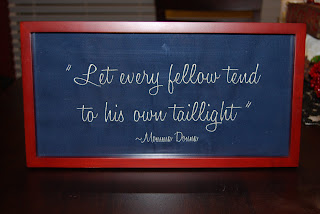 "Let every fellow tend
to his own taillight"
~Momma Donna